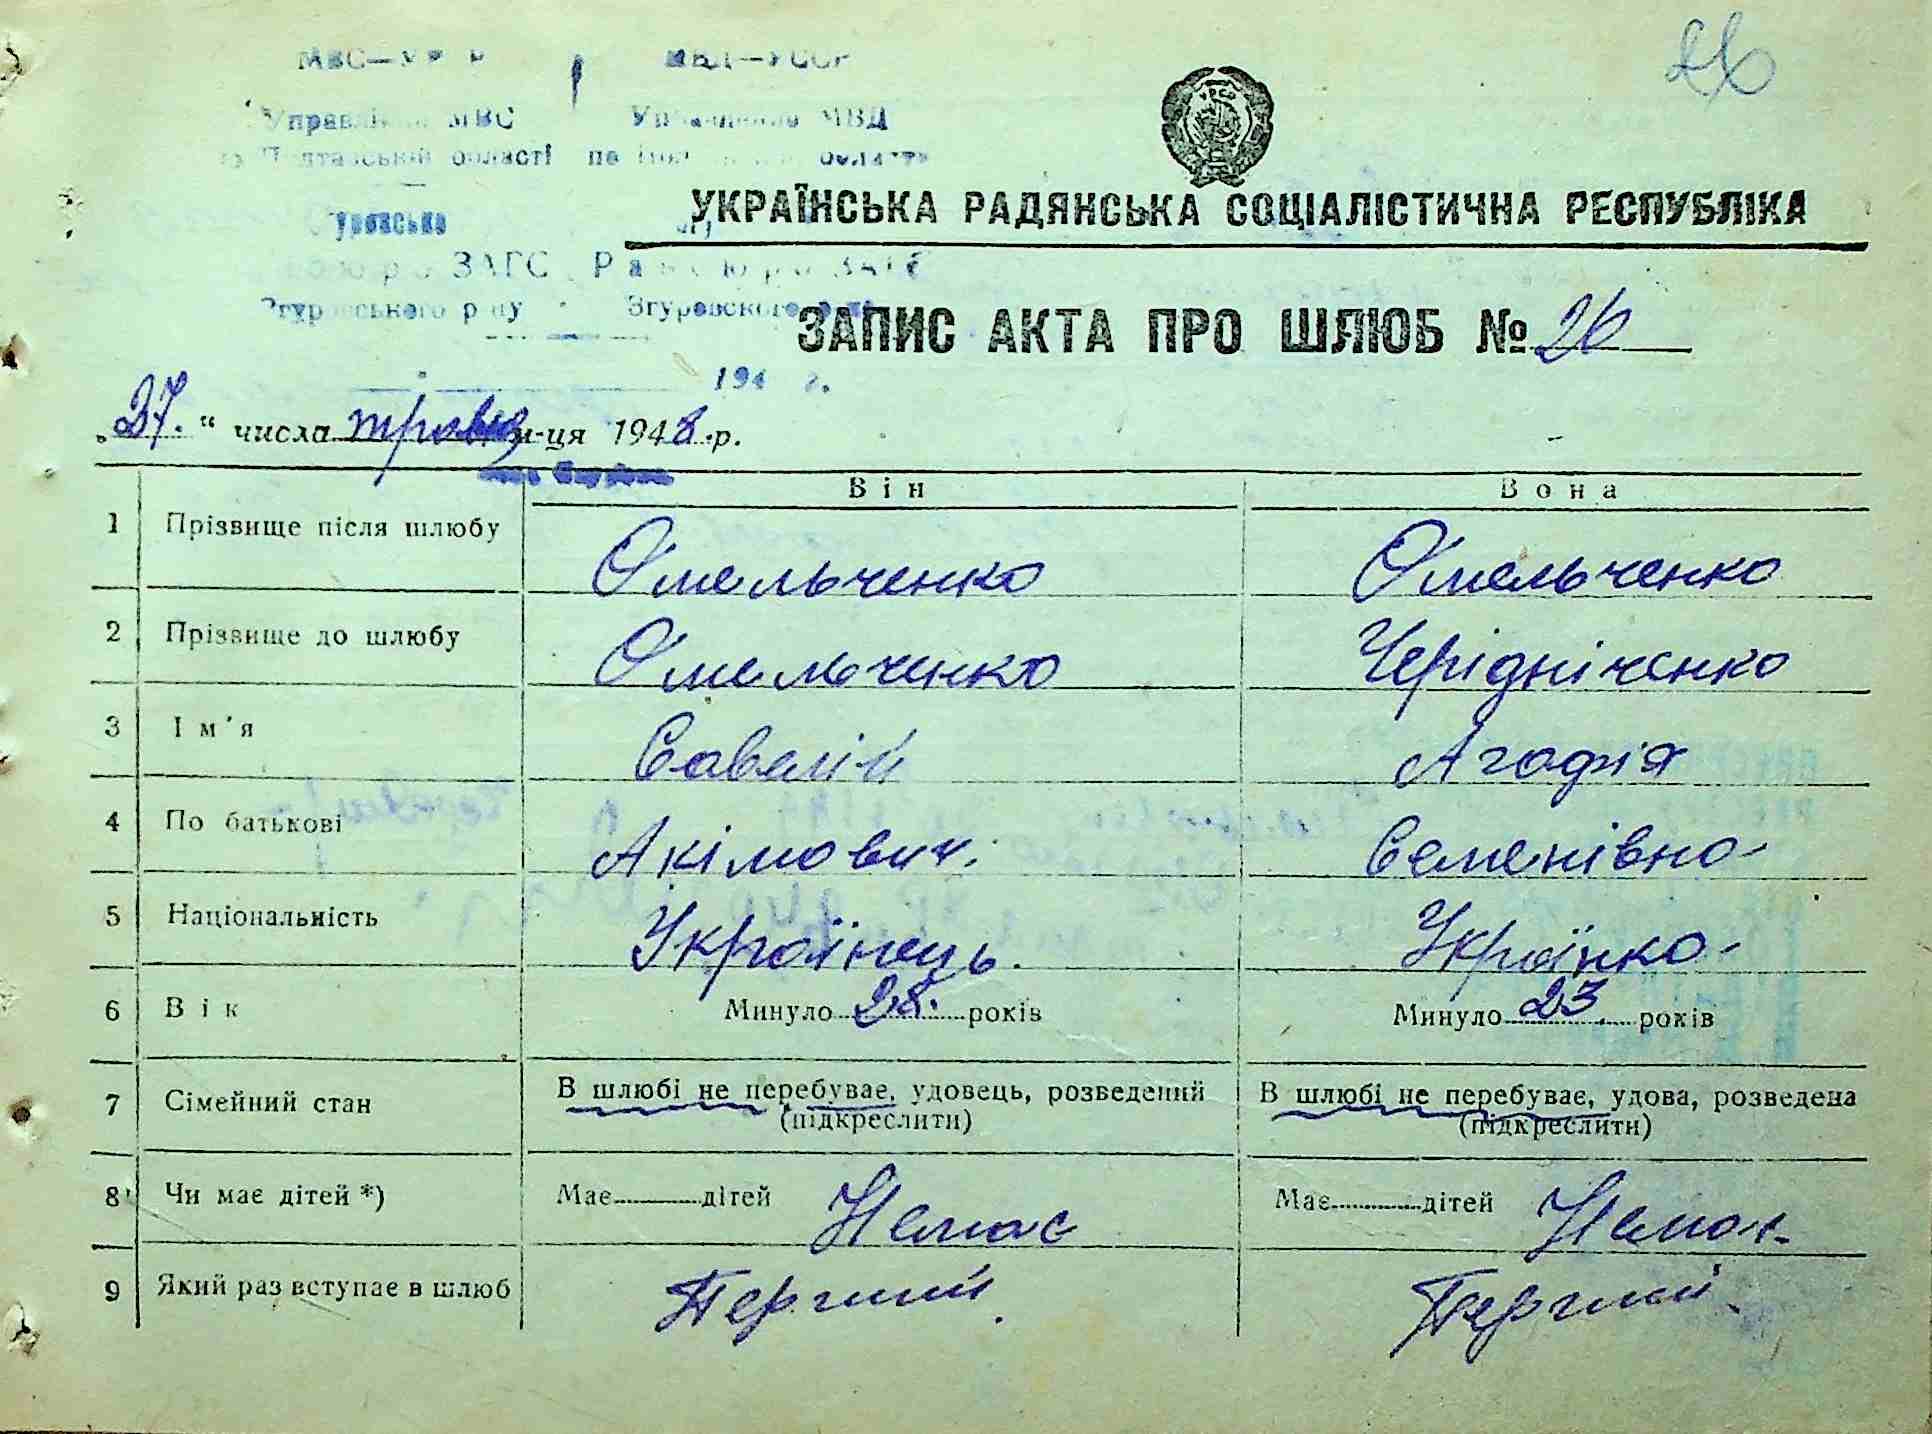 Управління МВС Управление МВД
Полтавській області по области
ЗАГС
Згурівського р-ну Згуровского
УКРАЇНСЬКА РАДЯНСЬКА СОЦІАЛІСТИЧНА РЕСПУБЛІКА
ЗАПИС АКТА ПРО ШЛЮБ № 26
194 г.
„27.“ числа травня м-ця 1948.р.
Він Вона
1 Прізвище після шлюбу Омельченко Омельченко
2 Прізвище до шлюбу Омельченко Черідніченко
3 Ім'я Савелій Агафія
4 По батькові Акімович. Семенівна
5 Національність Українець. Українка
6 Вік Минуло 28. років Минуло 23. років
7 Сімейний стан В шлюбі не перебуває, удовець, розведений В шлюбі не перебуває, удова, розведена
(підкреслити) (підкреслити)
8 Чи має дітей *) Має дітей Немає Має дітей Немає
9 Який раз вступає в шлюб Перший. Перший.